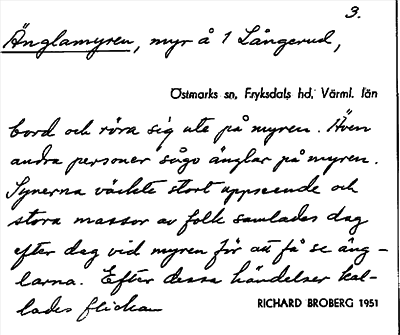 3.
Änglamyren, myr å 1 Långerud,
Östmarks sn, Fryksdals hd, Värml. län
bord och röra sig ute på myren. Även
andra personer sågo änglar på myren.
Synerna väckte stort uppseende och
stora massor av folk samlades dag
efter dag vid myren för att få se äng-
larna. Efter dessa händelser kal-
lades flickan
RICHARD BROBERG 1951